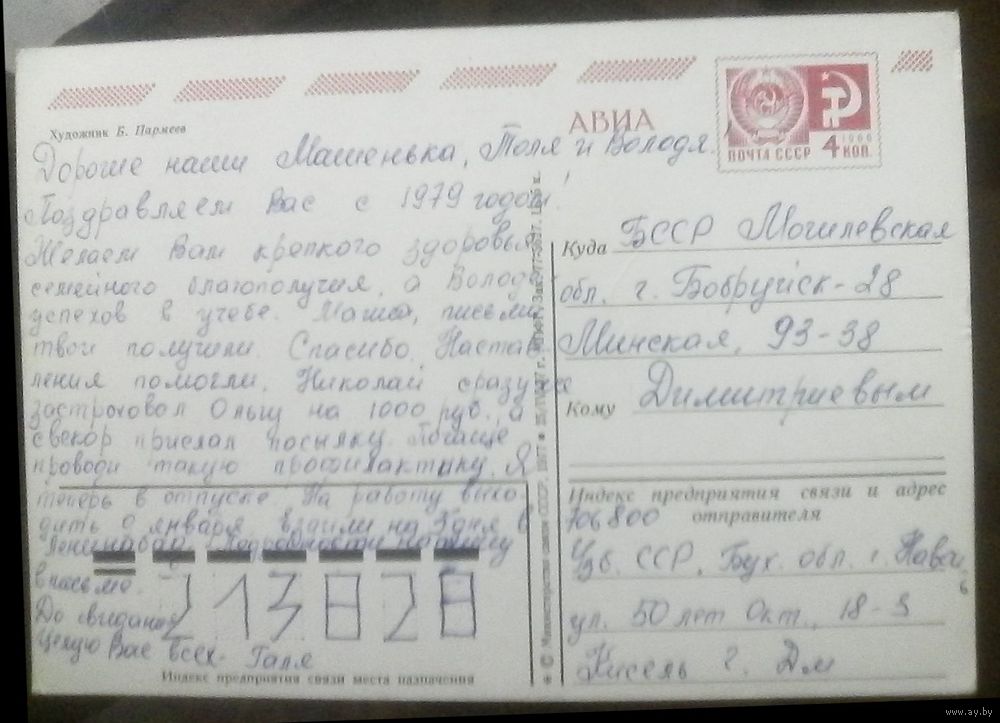 Художник Б. Пармеев
АВИА
1966
ПОЧТА СССР 4 КОП.
Дорогие наши Машенька, Толя и Володя!
Поздравляем Вас с 1979 годом!
Желаем Вам крепкого здоровья
семейного благополучия, а Володе
успехов в учебе. Маша, письмо
твои получили. Спасибо. Настав
ления помогли. Николай сразу же
застраховал Ольгу на 1000 руб., а
свекор прислал посылку. Почаще
проводи такую профилактику. Я
теперь в отпуске. На работу выхо
дить 9 января. ездили на 5 дня в
Ленинабад. Подробности напишу
в письмо.
До свидания
Целую Вас всех. Галя
213828
Индекс предприятия связи места назначения
© Министерство связи СССР. 1977
Куда БССР Могилевская
обл. г. Бобруйск-28
Минская, 93-38
Кому Димитриевым
Индекс предприятия связи и адрес
отправителя
706800
Узб. ССР, Бух. обл. г. Навои
ул. 50 лет Окт., 18-3
Кисель Г. Дм
www.ay.by